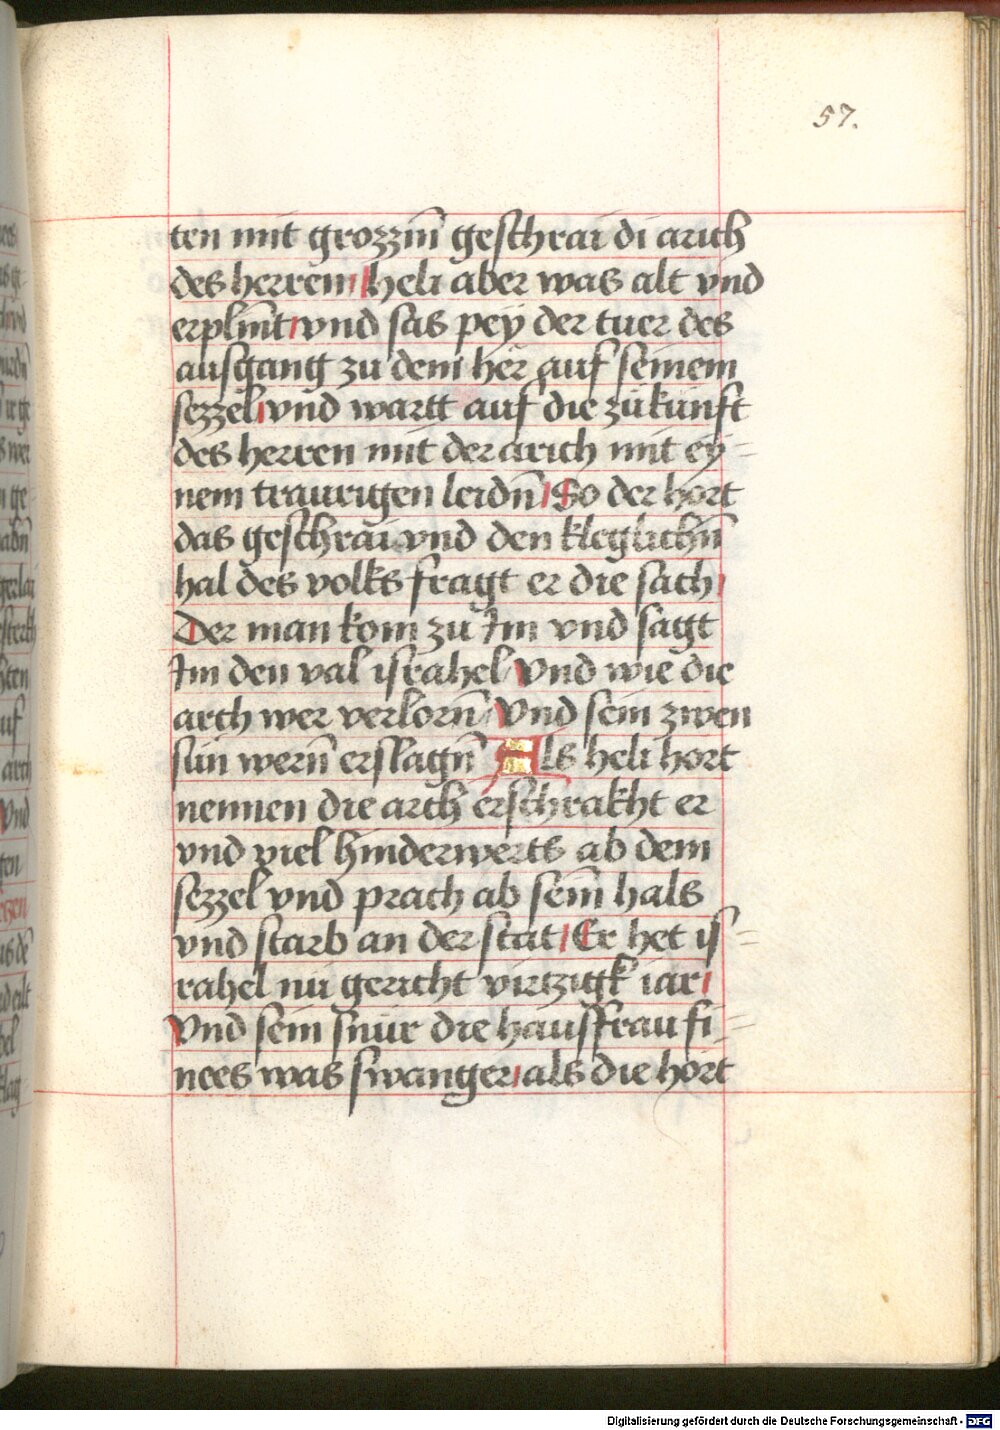 57.
ten mit grozzm̄ geschrai di arich
des herren heli aber was alt vnd
erplint vnd sas peÿ der tuer des
ausgang zu dem her auf seinem
sezzel vnd wartt auf die zukunft
des herren mit der arich mit eÿ=
nem traurigen leidn̄ So der hort
das geschrai vnd den kleglichn̄
hal des volks fragt er die sach
Der man kom zu Im vnd sagt
Im den val israhel Vnd wie die
arch wer verlorn̄ Vnd sein zwen
sün wern̄ erslagn̄ Als heli hort
nennen die arch erschrakht er
vnd viel hinderwerts ab dem
sezzel vnd prach ab seim̄ hals
vnd starb an der stat Er het is=
rahel nü gericht virtzigk iar
Vnd sein snür die hausfrau fi=
nees was swanger als die hort
Digitalisierung gefördert durch die Deutsche Forschungsgemeinschaft - DFG